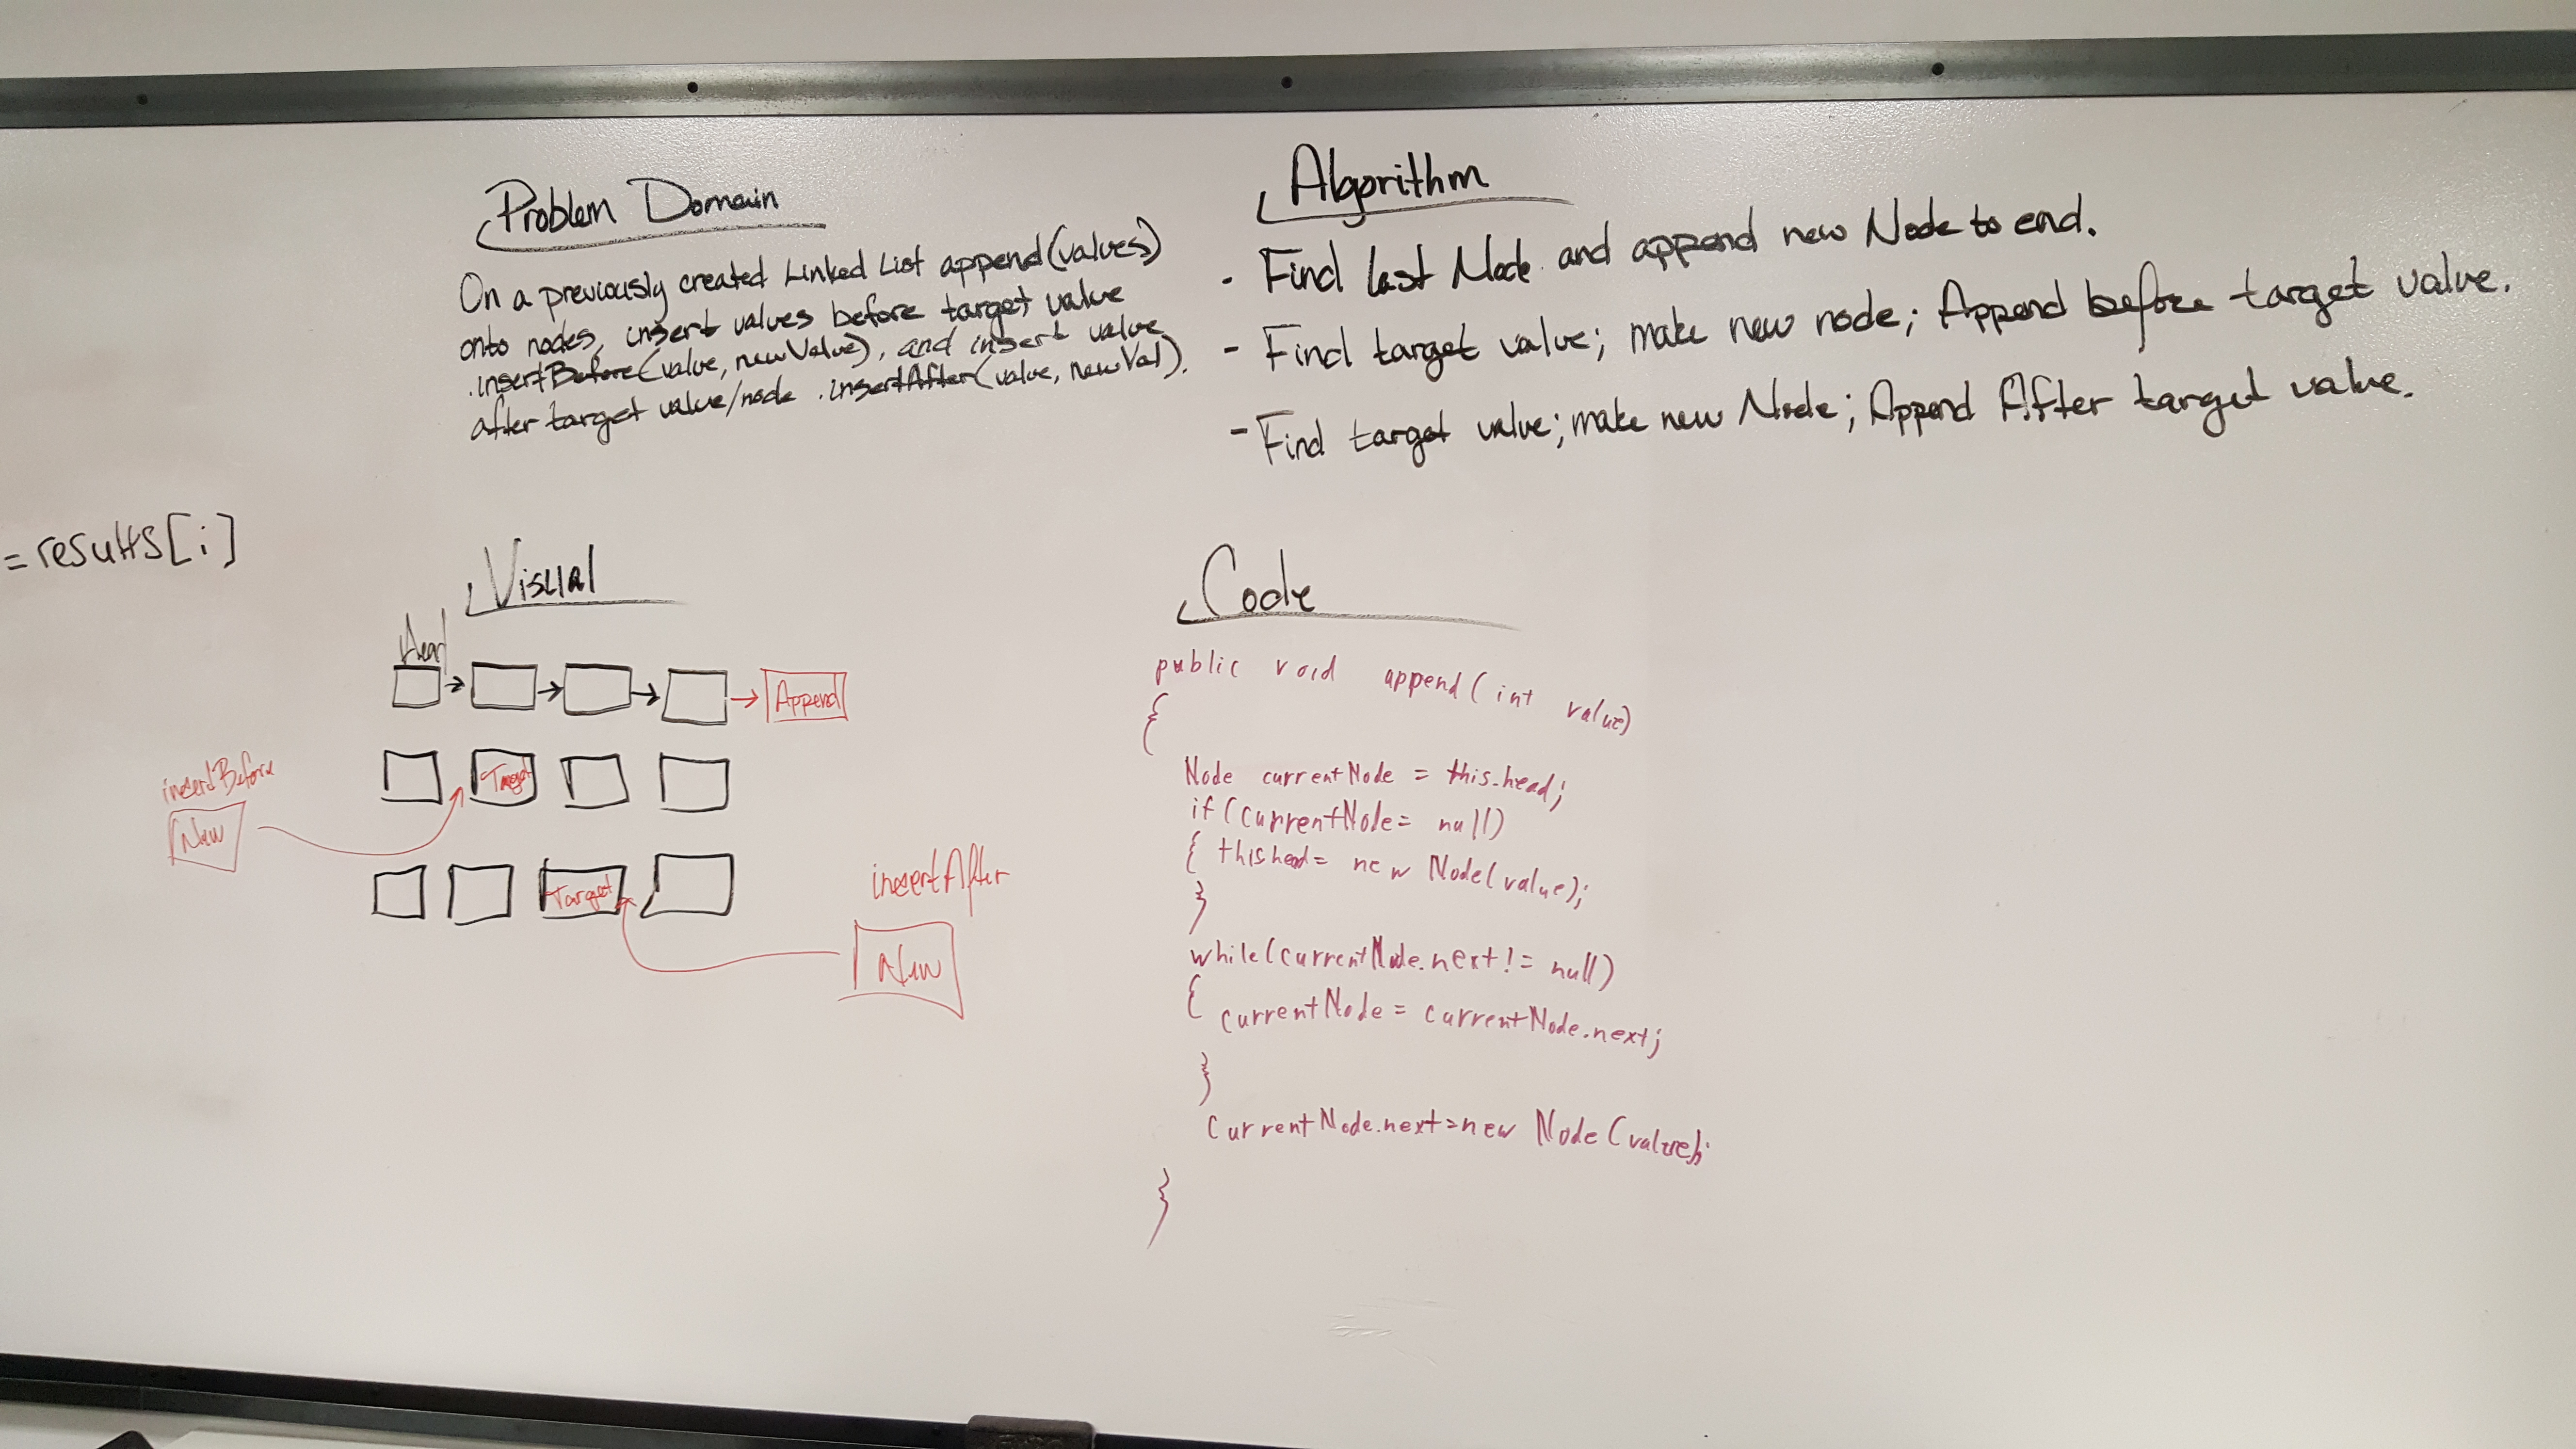 Problem Domain
On a previously created Linked List append(values)
onto nodes, insert values before target value
.insertBefore(value, newValue), and insert value
after target value/node .insertAfter(value, newVal).
Algorithm
- Find last Node and append new Node to end.
- Find target value; make new node; Append before target value.
- Find target value; make new Node; Append After target value.
= results[i]
Visual
Head
Append
insertBefore
New
Target
Target
insertAfter
New
Code
public void append(int value)
{
Node currentNode = this.head;
if(currentNode= null)
{ this.head= new Node(value);
}
while(currentNode.next!= null)
{
currentNode = currentNode.next;
}
currentNode.next=new Node(value);
}